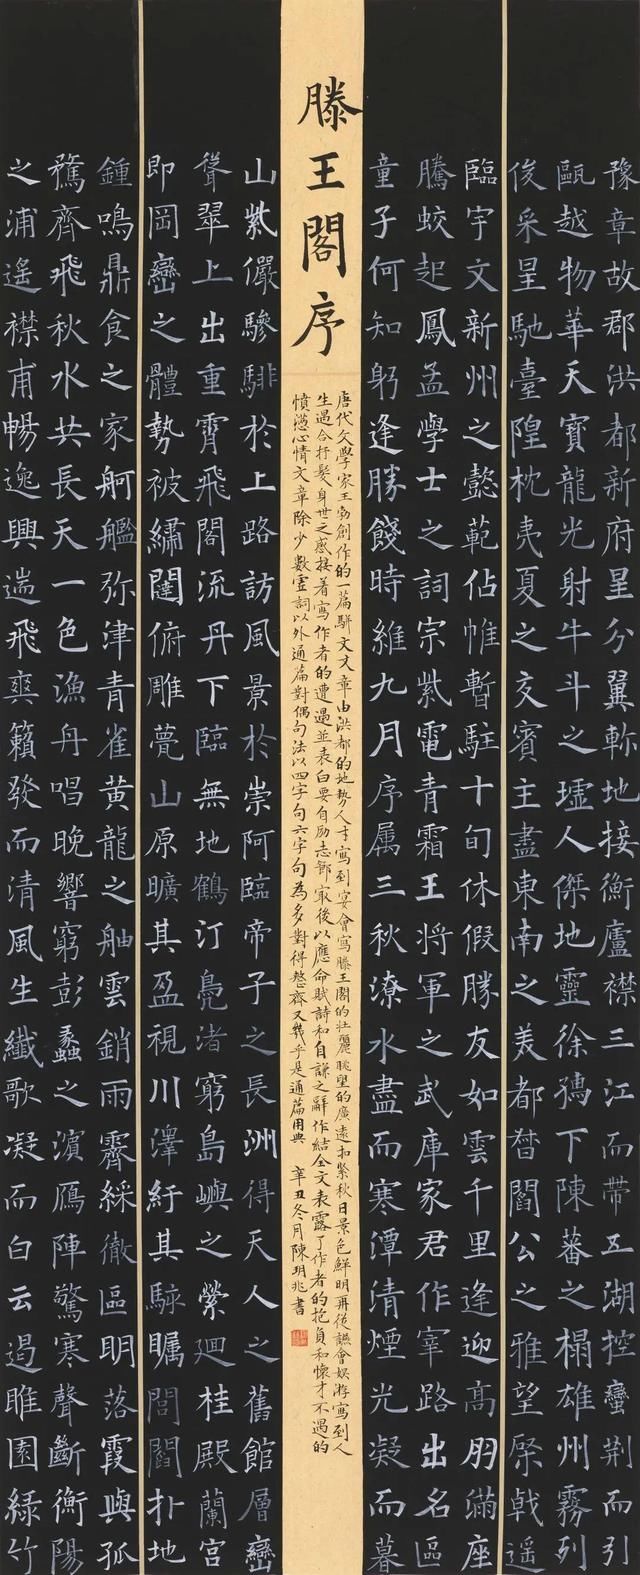 豫章故郡洪都新府星分翼軫地接衡廬襟三江而帶五湖控蠻荆而引
甌越物華天寶龍光射牛斗之墟人傑地靈徐孺下陳蕃之榻雄州霧列
俊采星馳臺隍枕夷夏之交賓主盡東南之美都督閻公之雅望棨戟遥
臨宇文新州之懿範佔帷暫駐十旬休假勝友如雲千里逢迎高朋滿座
騰蛟起鳳孟學士之詞宗紫電青霜王將軍之武庫家君作宰路出名區
童子何知躬逢勝餞時維九月序属三秋潦水盡而寒潭清煙光凝而暮
滕王閣序
唐代文學家王勃創作的一篇駢文文章由洪都的地勢人才寫到宴會寫滕王閣的壯麗眺望的廣遠扣緊秋日景色鮮明再從讌會娱游寫到人
生遇合抒髮身世之感接着寫作者的遭遇並表白要自励志節最後以應命賦詩和自謙之辭作結全文表露了作者的抱負和懷才不遇的
憤懣心情文章除少數虚詞以外通篇對偶句法以四字句六字句為多對得整齊又幾乎是通篇用典 辛丑冬月陳玥兆書
山紫儼驂騑於上路訪風景於崇阿臨帝子之長洲得天人之舊館層巒
聳翠上出重霄飛閣流丹下臨無地鶴汀鳧渚窮島嶼之縈廻桂殿蘭宫
即岡巒之體勢被繡闥俯雕甍山原曠其盈視川澤紆其駭矚閭閻扑地
鍾鳴鼎食之家舸艦弥津青雀黄龍之舳雲銷雨霽綵徹區明落霞與孤
鶩齊飛秋水共長天一色漁舟唱晚響窮彭蠡之濱鴈陣驚寒聲斷衡陽
之浦遥襟甫暢逸興遄飛爽籟發而清風生纖歌凝而白云遏睢園緑竹